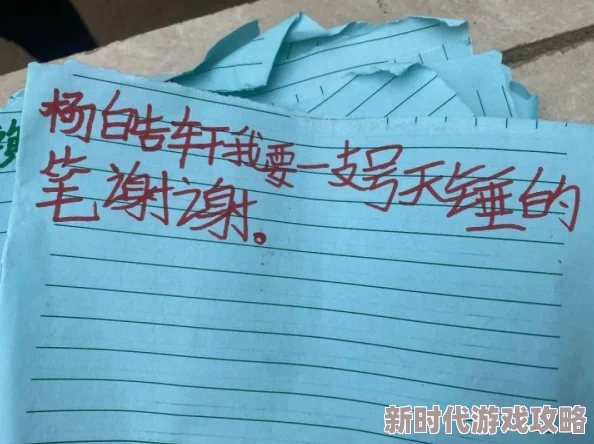 杨皓轩我要一支号天锤的
笔谢谢。
新时代游戏攻略